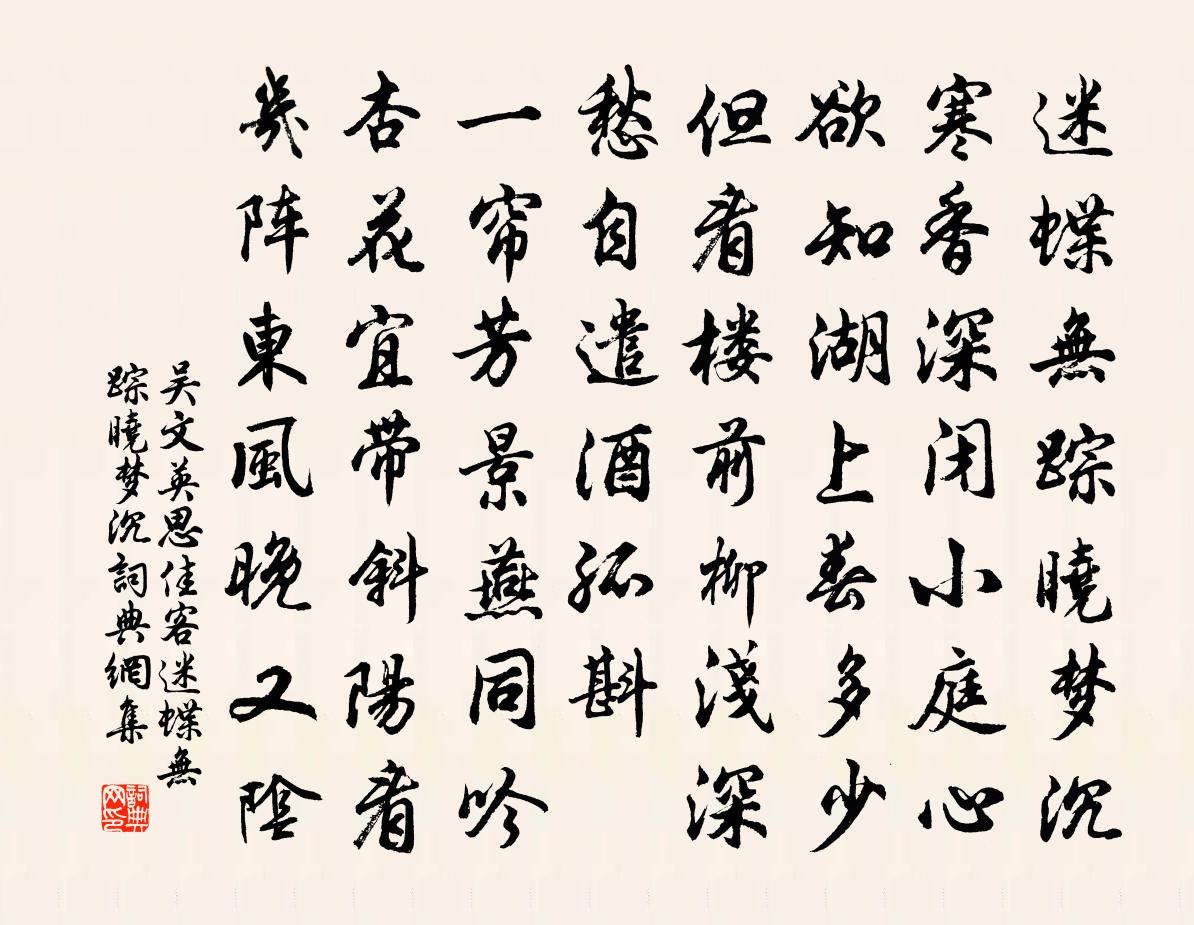 迷蝶無踪曉梦沉
寒香深闭小庭心
欲知湖上春多少
但看楼前柳淺深
愁自遣酒孤斟
一帘芳景燕同吟
杏花宜带斜陽看
幾阵東風晚又陰
吴文英思佳客迷蝶無
踪曉梦沉詞典網集
詞典
网印